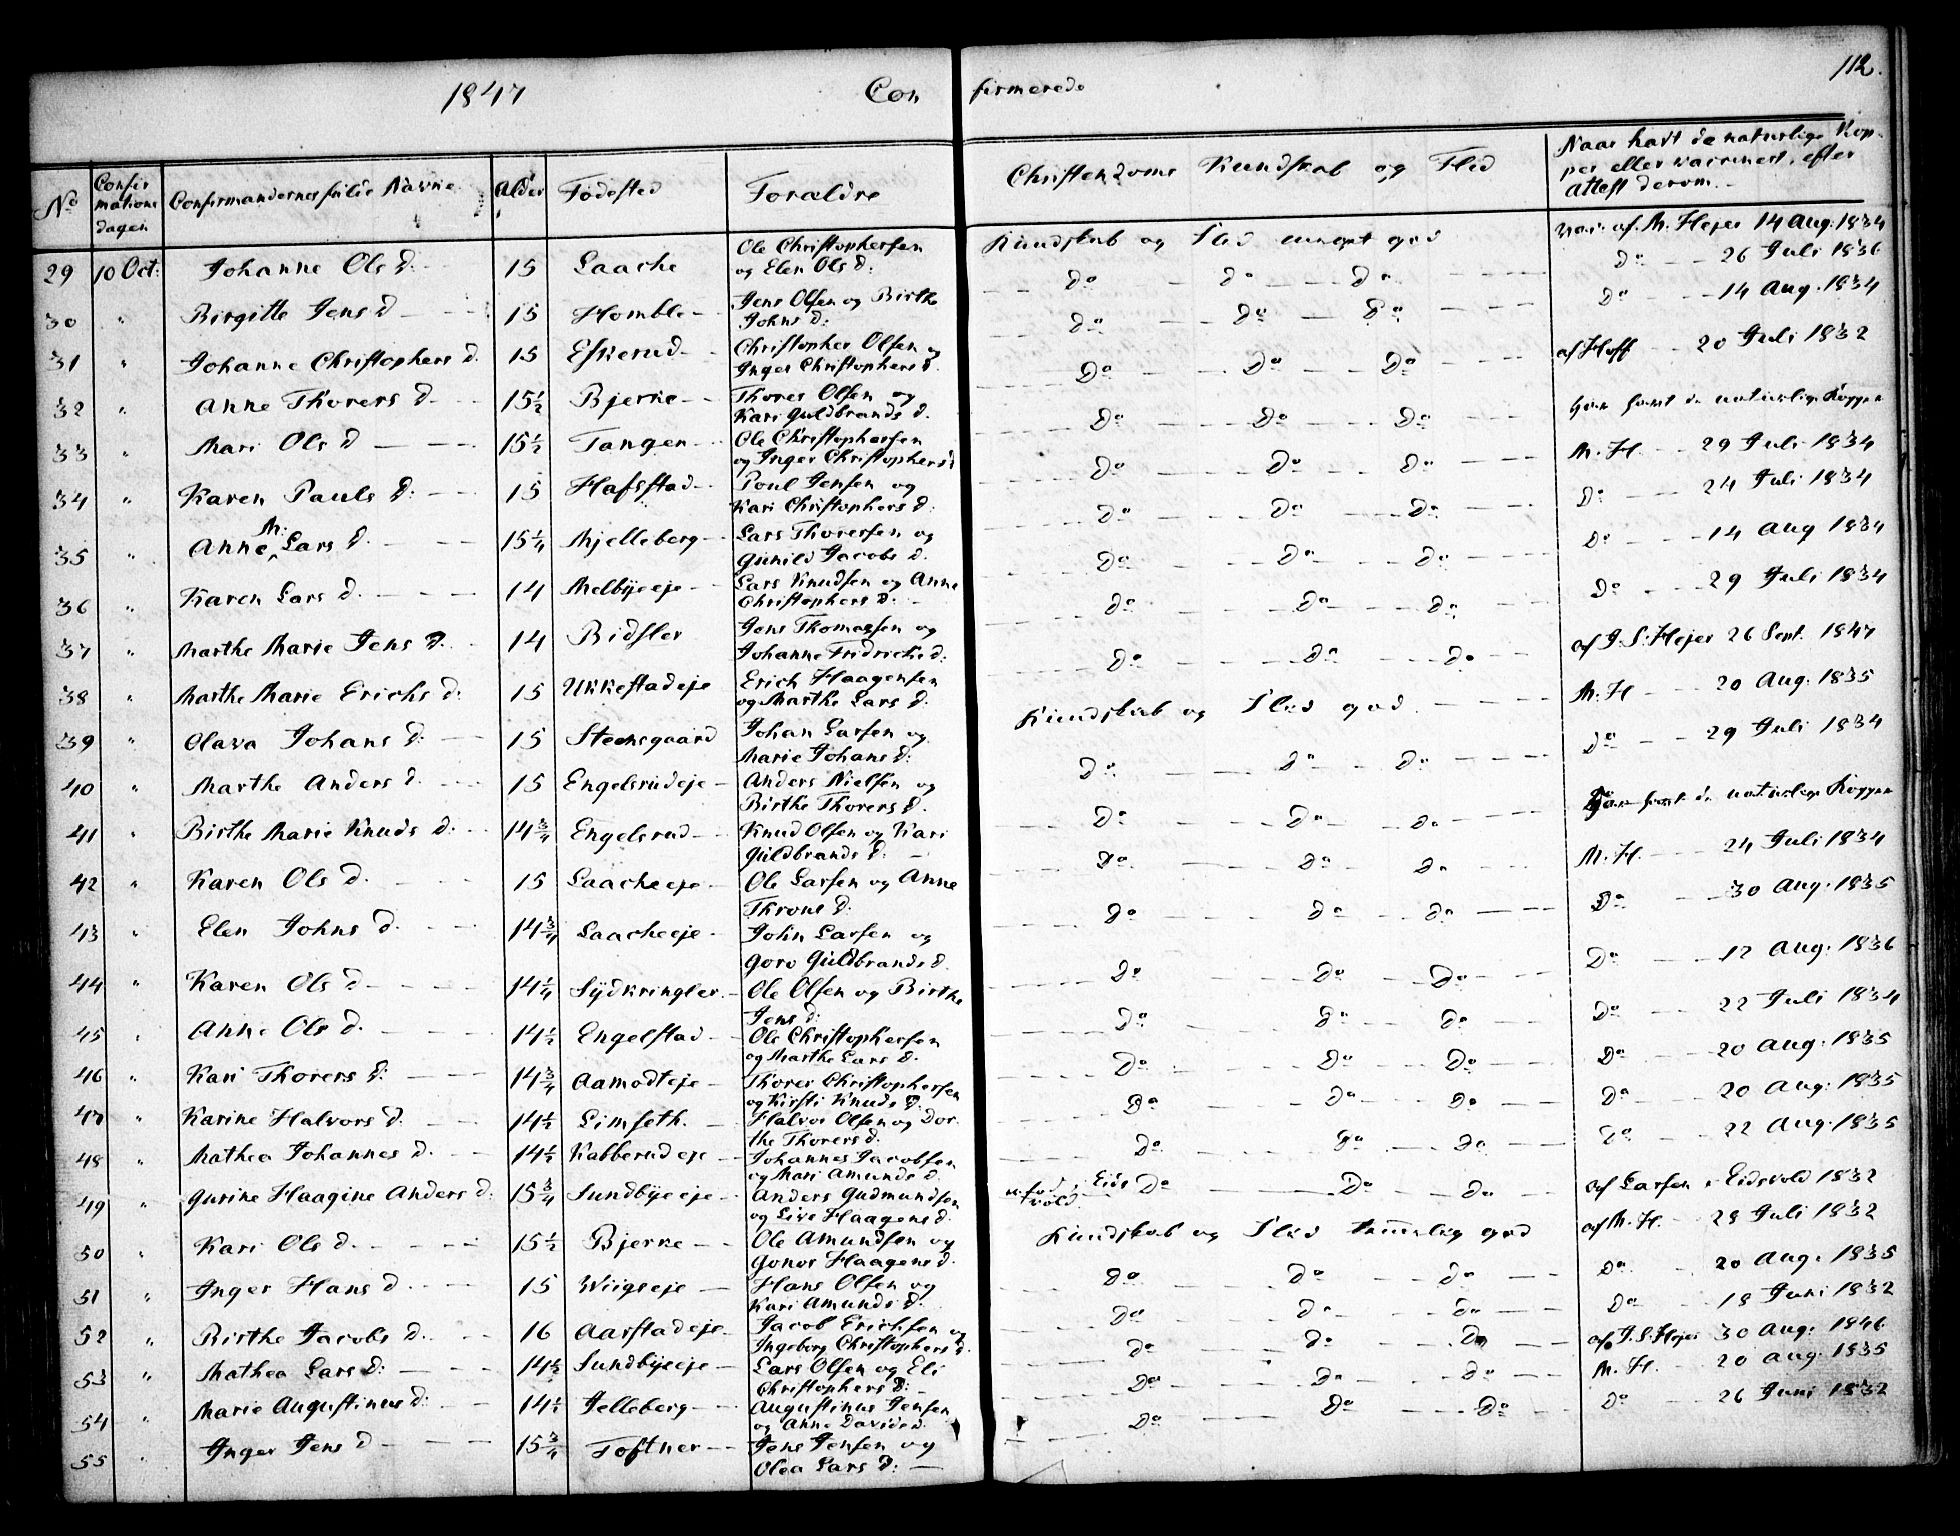 1847 Confirmerede 112.
No Confirmations dagen Confirmandernes fulde Navne Alder Fødested Forældre Christendoms Kundskab og Flid Naar havt de naturlige Kopper eller vaccinert, efter Attest derom.
29 10 Oct: Johanne Ols d. 15 Laache Ole Christophersen og Elen Ols d: Kundskab og Flid meget god vac: af M. Hejer 14 Aug. 1834
30 " Birgitte Jens d 15 Homble Jens Olsen og Birthe Johns d: Do Do Do Do 26 Juli 1836
31 " Johanne Christophers d. 15 Eskerud Christopher Olsen og Inger Christophers d. Do Do Do Do 14 Aug. 1834
32 " Anne Thorers d. 15½ Bjerke Thorer Olsen og Kari Guldbrands d. Do Do Do af Hoff 20 Juli 1832
33 " Mari Ols d 15½ Tangen Ole Christophersen og Inger Christophers d Do Do Do har havt de naturlige Kopper
34 " Karen Pauls d: 15 Hafstad Poul Jensen og Kari Christophers d: Do Do Do M. H. 29 Juli 1834
35 " Anne M: Lars d. 15¼ Mjelleberg Lars Thorersen og Gunild Jacobs d. Do Do Do Do 24 Juli 1834
36 " Karen Lars d. 14 Melbyeeje Lars Knudsen og Anne Christophers d: Do Do Do Do 14 Aug 1834
37 " Marthe Marie Jens d. 14 Bidsler Jens Thomassen og Johanne Fridricke d: Do Do Do Do 29 Juli 1834
38 " Marthe Marie Erichs d: 15 Ukkestadeje Erich Haagensen og Marthe Lars d. Do Do Do af J. S. Hejer 26 Sept. 1847
39 " Olava Johans d: 15 Steensgaard Johan Larsen og Marie Johans d: Kundskab og Flid god M. H 20 Aug. 1835
40 " Marthe Anders d. 15 Engelsrudeje Anders Nielsen og Birthe Thorers d. Do Do Do Do 29 Juli 1834
41 " Birthe Marie Knuds d: 14¾ Engelsrud Knud Olsen og Kari Guldbrands d: Do Do Do har havt de naturlige Kopper
42 " Karen Ols d. 15 Laacheeje Ole Larsen og Anne Throns d: Do Do Do M. H. 24 Juli 1834
43 " Elen Johns d. 14¾ Laacheeje John Larsen og Goro Guldbrands d. Do Do Do Do 30 Aug. 1835
44 " Karen Ols d 14¼ Sydkringler Ole Olsen og Birthe Jens d: Do Do Do Do 12 Aug. 1836
45 " Anne Ols d. 14½ Engelstad Ole Christophersen og Marthe Lars d. Do Do Do Do 22 Juli 1834
46 " Kari Thorers d: 14¾ Aamodteje Thorer Christophersen og Kirsti Knuds d. Do Do Do Do 20 Aug. 1835
47 " Karine Halvors d: 14½ Limseth. Halvor Olsen og Dorthe Thorers d. Do Do Do Do 20 Aug: 1835
48 " Mathea Johannes d. 14½ Kabberudeje Johannes Jacobsen og Mari Amunds d. Do Do Do Do 22 Aug. 1835
49 " Gurine Haagine Anders d: 15¾ Sundbyeeje Anders Gudmundsen og Live Haagens d. Eidsvold. Do Do Do af Larsen i Eidsvold 1832
50 " Kari Ols d. 15½ Bjerke Ole Amundsen og Gonor Haagens d. Kundskab og Flid temmelig god af M. H. 28 Juli 1832
51 " Inger Hans d. 15 Wiigseje Hans Olsen og Kari Amunds d. Do Do Do Do 20 Aug. 1835
52 " Birthe Jacobs d. 16 Aarstadeje Jacob Erichsen og Ingeborg Christophers d. Do Do Do Do 18 Juni 1832
53 " Mathea Lars d: 14½ Sundbyeeje Lars Olsen og Eli Christophers d: Do Do Do af J. S. Hejer 30 Aug: 1846
54 " Marie Augustinus d: 14½ Jelleberg Augustinus Jensen og Anne Davids d. Do Do Do M. H. 20 Aug. 1835
55 " Inger Jens d 15¾ Toftner Jens Jensen og Olea Lars d: Do Do Do Do 26 Juni 1832